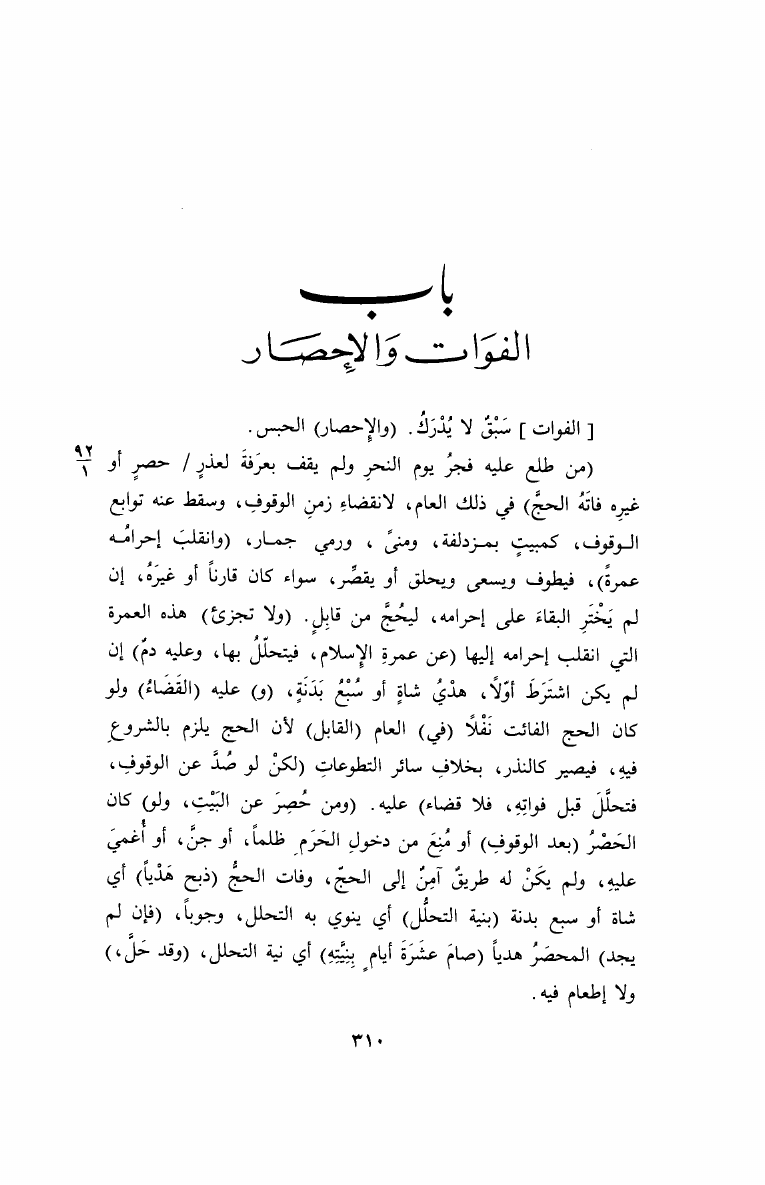 باب
الفوَات وَالإحصَار
[ الفوات ] سَبْقٌ لا يُدْرَكُ. (والإحصار) الحبس.
(من طلع عليه فجرُ يوم النحرِ ولم يقف بعرَفةَ لعذرٍ / حصرٍ أو
٩٢
١
غيرِه فاتَهُ الحجَّ) في ذلك العام، لانقضاءِ زمنِ الوقوفِ، وسقط عنه توابع
الـوقوف، كمبيتٍ بمـزدلفة، ومنىً ، ورمي جمـار، (وانقلبَ إحرامُـه
عمرةً)، فيطوف ويسعى ويحلق أو يقصِّر، سواء كان قارناً أو غيرَهُ، إن
لم يَخْتَرِ البقاءَ على إحرامه، ليحُجَّ من قابِلٍ. (ولا تجزئ) هذه العمرة
التي انقلب إحرامه إليها (عن عمرةِ الإِسلام، فيتحلّلُ بها، وعليه دمٌ) إن
لم يكن اشتَرَطَ أوّلاً، هدْيُ شاةٍ أو سُبْعُ بَدَنَةٍ، (و) عليه (القَضَاءُ) ولو
كان الحج الفائت نَفْلاً (في) العام (القابل) لأن الحج يلزم بالشروعِ
فيهِ، فيصير كالنذر، بخلافِ سائر التطوعاتِ (لكنْ لو صُدَّ عن الوقوفِ،
فتحلَّلَ قبل فواتِهِ، فلا قضاء) عليه. (ومن حُصِرَ عن البَيْتِ، ولو) كان
الحَصْرُ (بعد الوقوفِ) أو مُنِعَ من دخولِ الحَرَمِ ظلماً، أو جنَّ، أو أُغميَ
عليهِ، ولم يكَنْ له طريقٌ آمِنٌ إلى الحجّ، وفات الحجُّ (ذبح هَدْياً) أي
شاة أو سبع بدنة (بنية التحلُّل) أي ينوي به التحلل، وجوباً، (فإن لم
يجد) المحصَرُ هدياً (صامَ عشَرَةَ أيامٍ بِنِيَّتِهِ) أي نية التحلل، (وقد حَلَّ،)
ولا إطعام فيه.
٣١٠